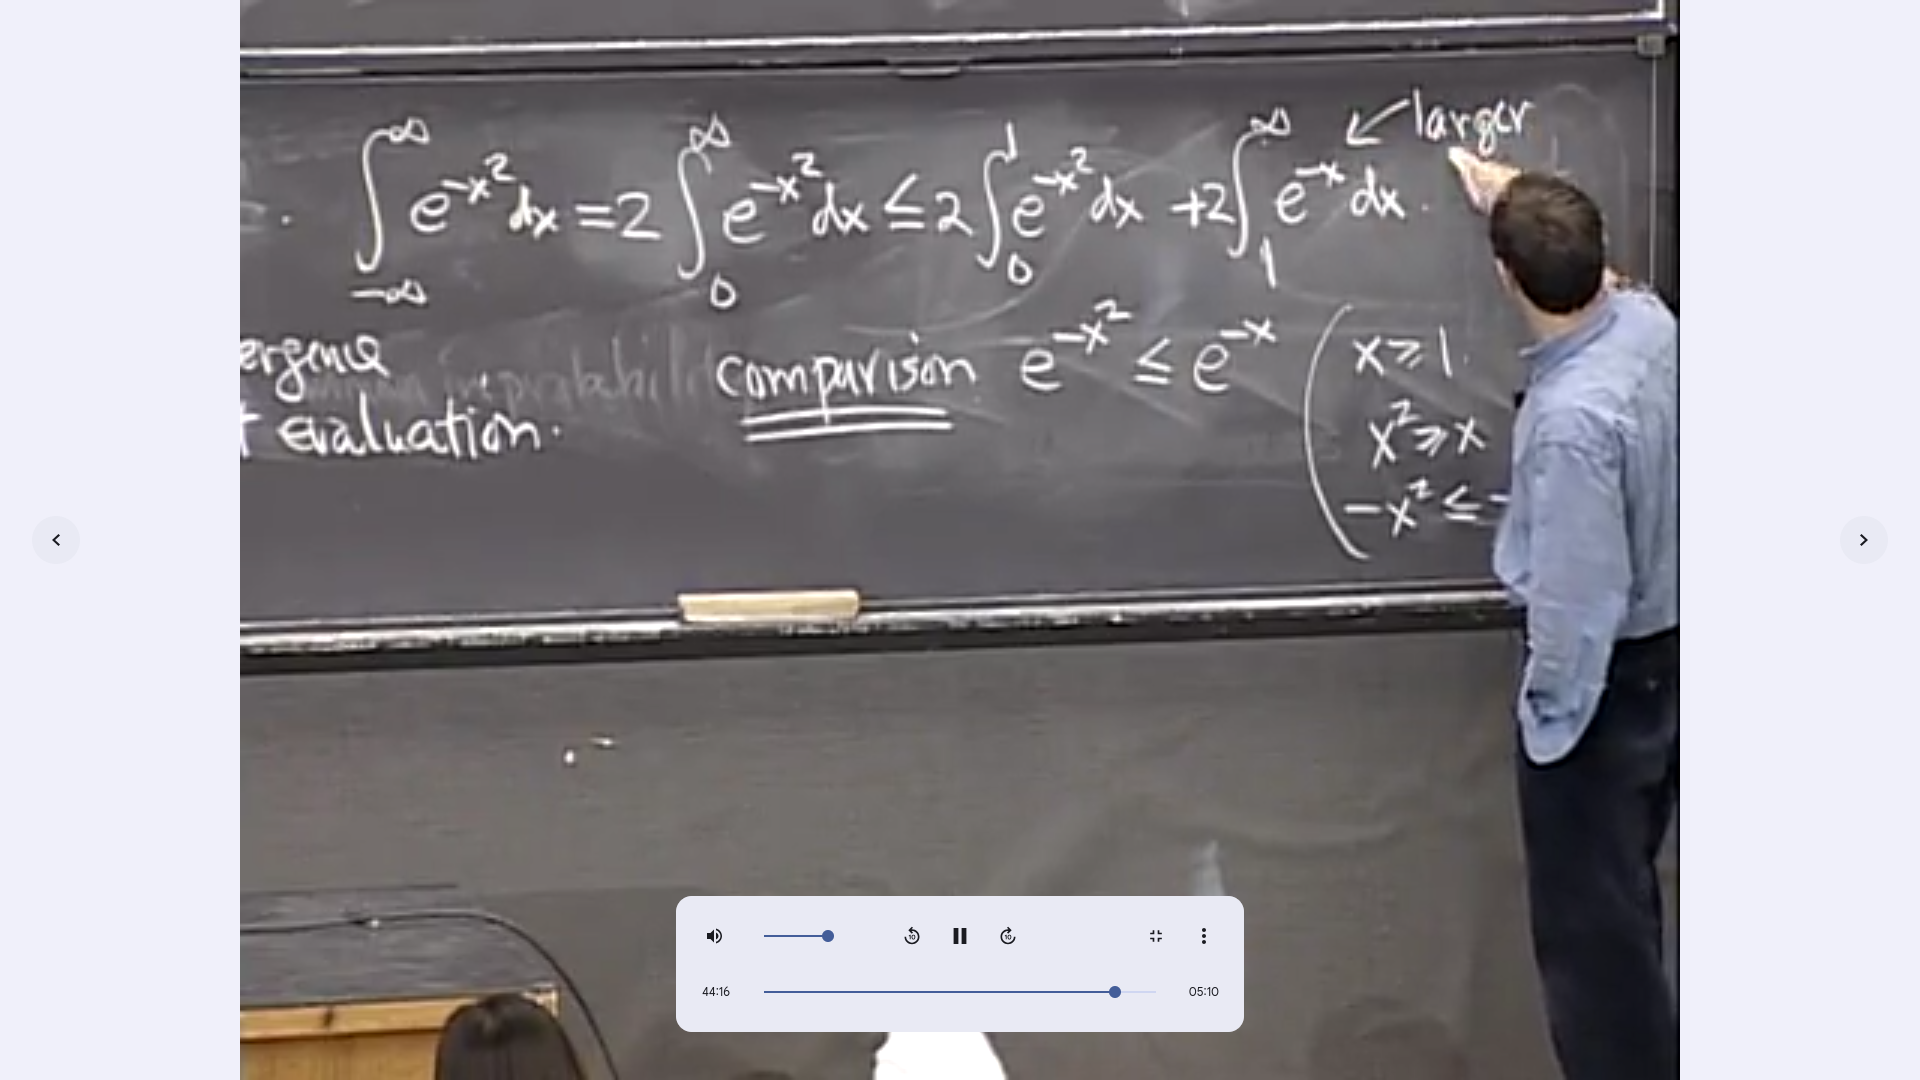 ∫_{-∞}^{∞} e^{-x²} dx = 2 ∫_0^∞ e^{-x²} dx ≤ 2 ∫_0^1 e^{-x²} dx + 2 ∫_1^∞ e^{-x} dx. ↙ larger
ergence
evaluation.
comparison e^{-x²} ≤ e^{-x} ( x ≥ 1.
x² ≥ x
-x² ≤ -
10 10
44:16 05:10